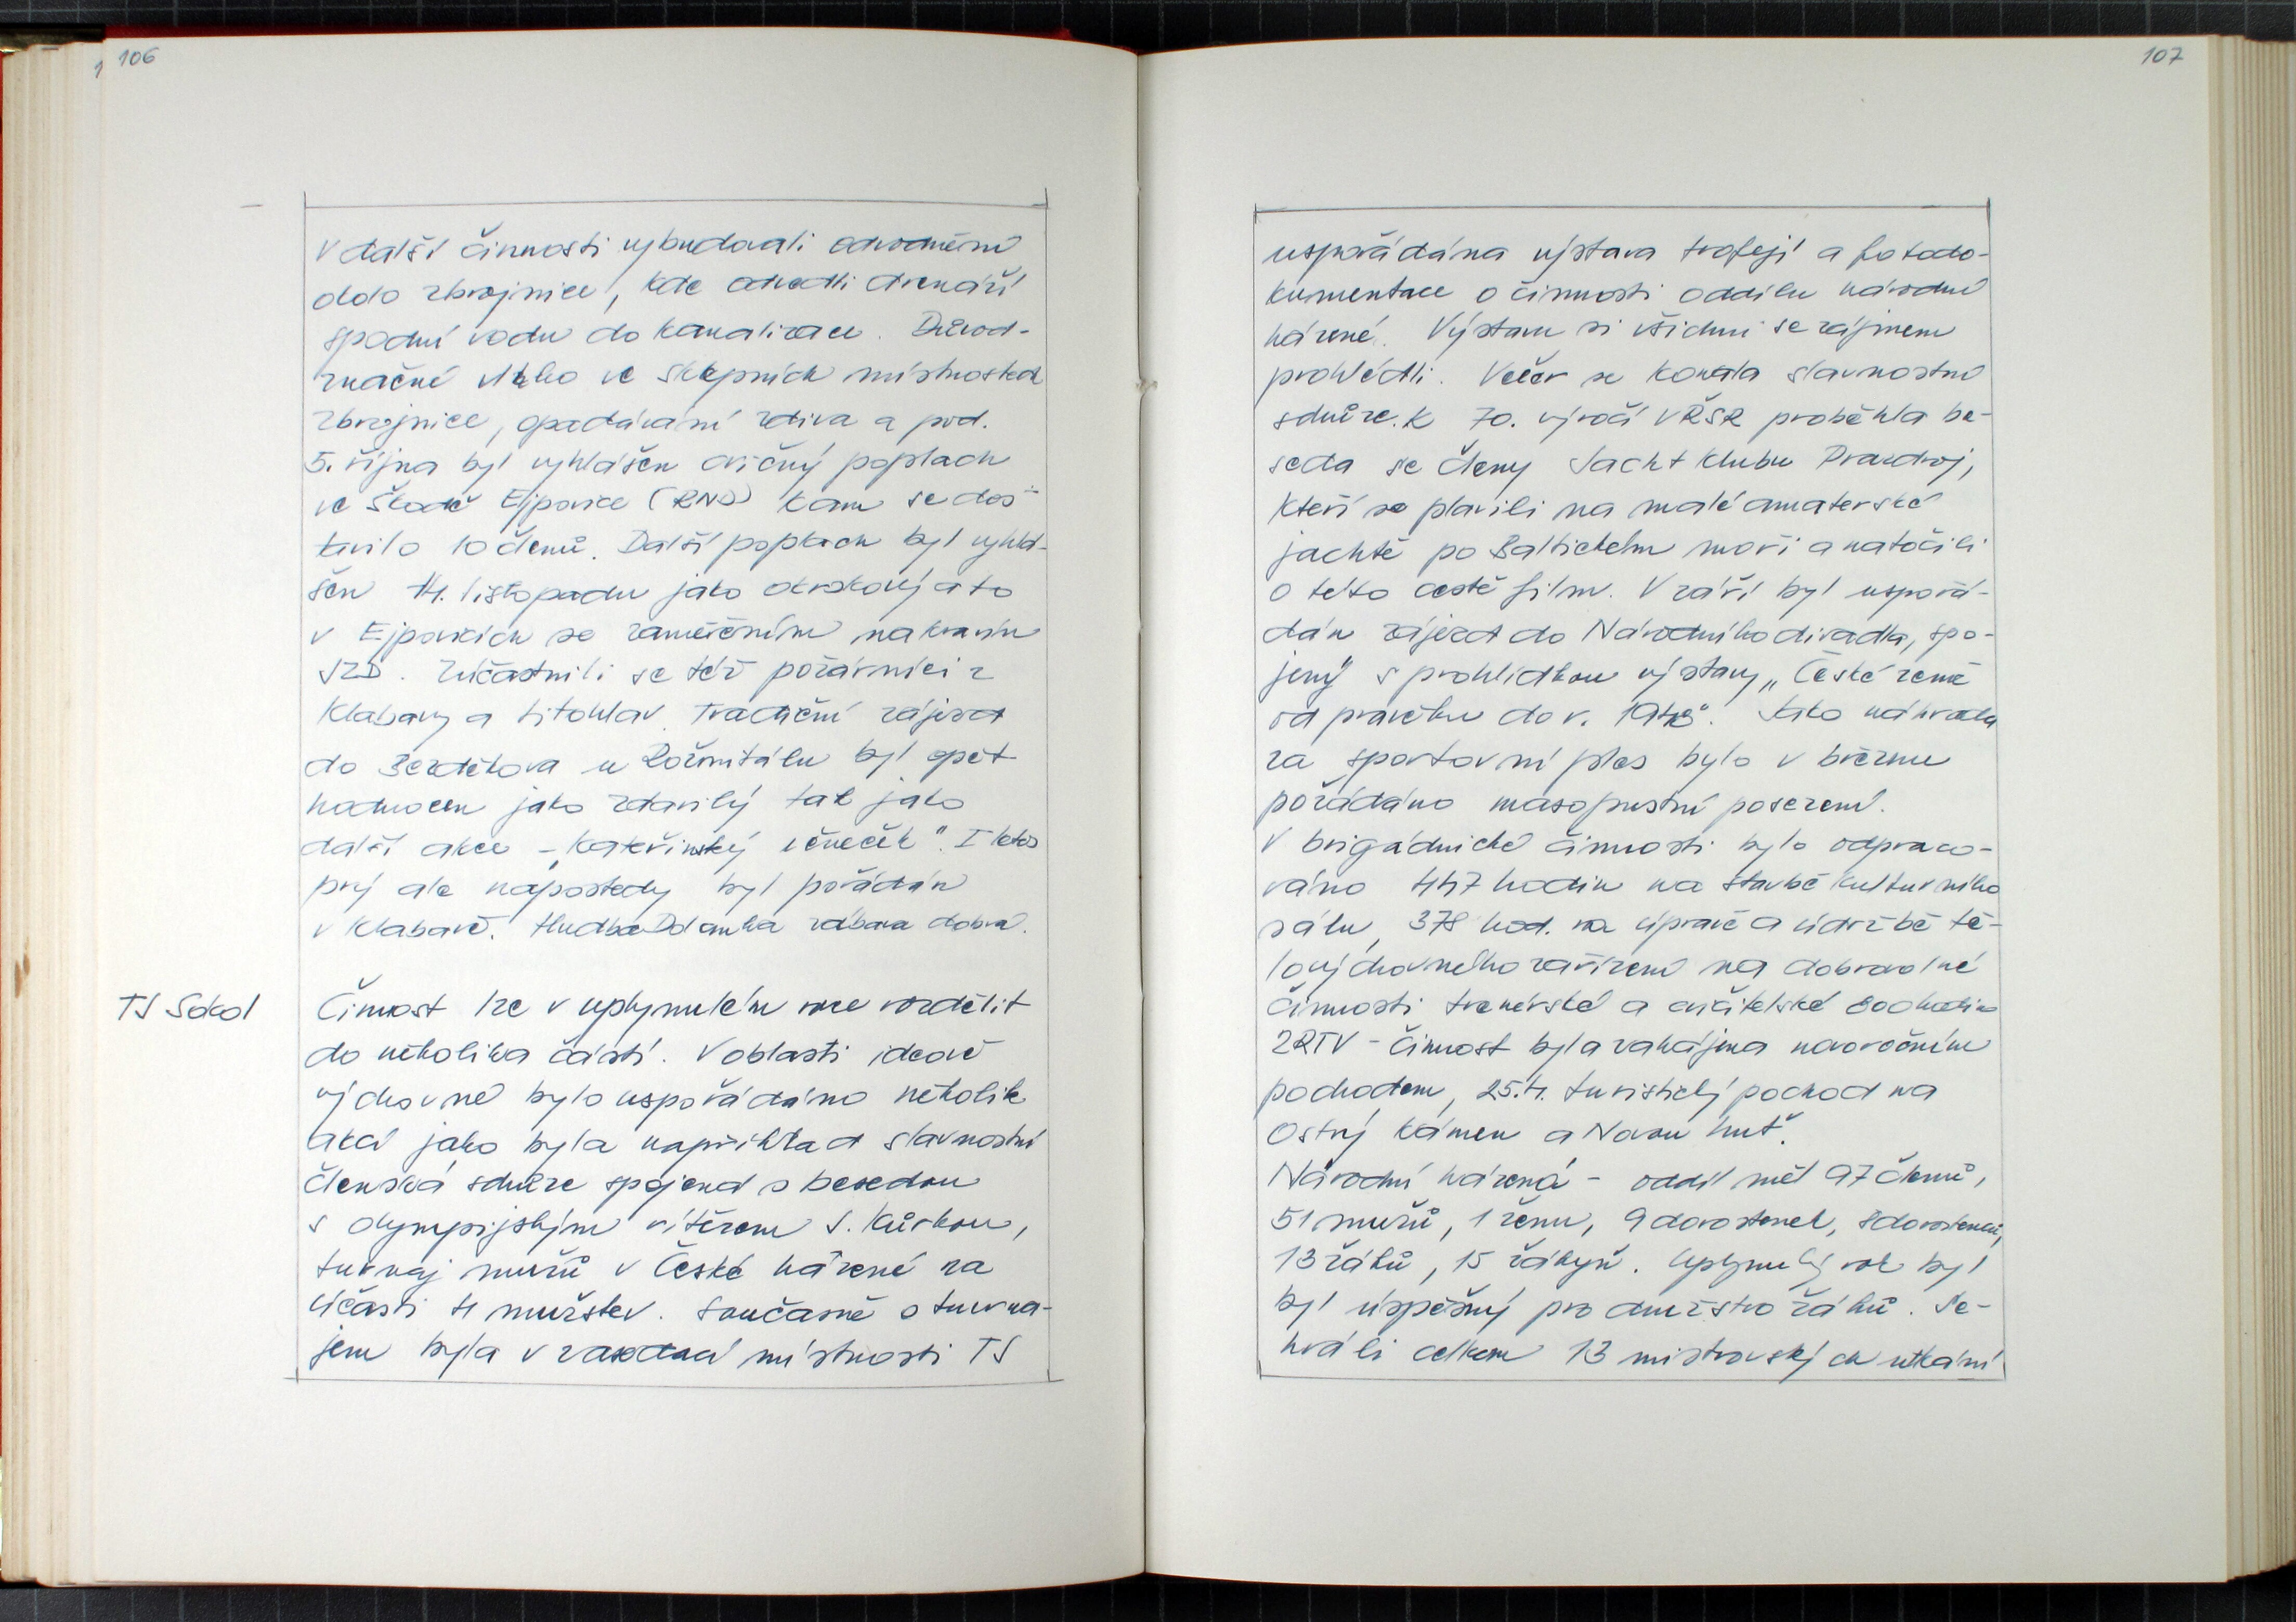 106
V další činnosti vybudovali odvodnění
okolo zbrojnice, kde odvedli drenáží
spodní vodu do kanalizace. Důvod -
značné vlhko ve sklepních místnostech
zbrojnice, opadávání zdiva a pod.
5. října byl vyhlášen cvičný poplach
ve Škodě Ejpovice (RND) kam se dos-
tavilo 10 členů. Další poplach byl vyhlá-
šen 14. listopadu jako okrskový a to
v Ejpovicích se zaměřením na kravín
JZD. Zúčastnili se též požárníci z
Klabavy a Litohlav. Tradiční zájezd
do Bezděkova u Rožmitálu byl opět
hodnocen jako zdařilý tak jako
další akce - „Kateřinský věneček". I letos
prý ale naposledy byl pořádán
v Klabavě. Hudba Dolanka zábava dobrá.
TJ Sokol
Činnost lze v uplynulém roce rozdělit
do několika částí. V oblasti ideově
výchovné bylo uspořádáno několik
akcí jako byla například slavnostní
členská schůze spojená s besedou
s olympijským vítězem J. Kůrkou,
turnaj mužů v České házené za
účasti 4 mužstev. Současně s turna-
jem byla v zasedací místnosti TJ
107
uspořádána výstava trofejí a fotodo-
kumentace o činnosti oddílu národní
házené. Výstavu si všichni se zájmem
prohlédli. Večer se konala slavnostní
schůze. K 70. výročí VŘSR proběhla be-
seda se členy Jacht klubu Prazdroj,
kteří se plavili na malé amaterské
jachtě po Baltickém moři a natočili
o této cestě film. V září byl uspořá-
dán zájezd do Národního divadla, spo-
jený s prohlídkou výstavy „České země
od pravěku do r. 1948". Jako náhrada
za sportovní ples bylo v březnu
pořádáno masopustní posezení.
V brigádnické činnosti bylo odpraco-
váno 447 hodin na stavbě kulturního
sálu, 378 hod. na úpravě a údržbě tě-
lovýchovného zařízení na dobrovolné
činnosti trenérské a cvičitelské 800 hodin
ZRTV - činnost byla zahájena novoročním
pochodem, 25.4. turistický pochod na
Ostrý kámen a Novou huť.
Národní házená - oddíl měl 97 členů,
51 mužů, 1 ženu, 9 dorostenek, 8 dorostenců,
13 žáků, 15 žákyň. Uplynulý rok byl
byl úspěšný pro družstvo žáků. Se-
hráli celkem 13 mistrovských utkání